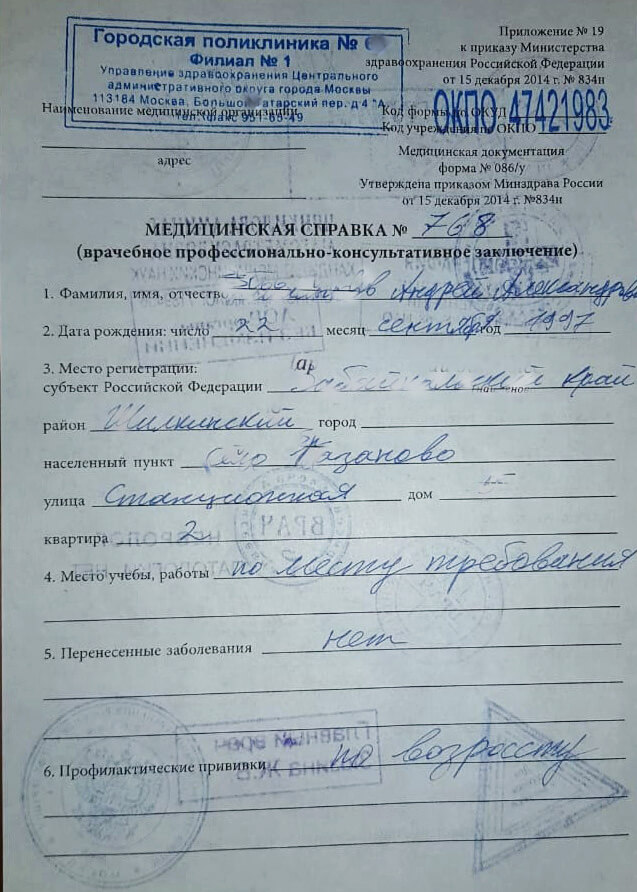 Городская поликлиника №
Филиал № 1
Управление здравоохранения Центрального
административного округа города Москвы
113184 Москва, Большой Татарский пер. д 4 "А
тел./факс 951-65-49
Приложение № 19
к приказу Министерства
здравоохранения Российской Федерации
от 15 декабря 2014 г. № 834н
Наименование медицинской организации
Код формы по ОКУД
Код учреждения по ОКПО
ОКПО 47421983
адрес
Медицинская документация
форма № 086/у
Утверждена приказом Минздрава России
от 15 декабря 2014 г. №834н
МЕДИЦИНСКАЯ СПРАВКА № 768
(врачебное профессионально-консультативное заключение)
1. Фамилия, имя, отчество Андрей Александрович
2. Дата рождения: число 22 месяц сентября год 1997
3. Место регистрации:
субъект Российской Федерации Забайкальский край
район Шилкинский город
населенный пункт Казаново
улица Станционная дом
квартира 2
4. Место учебы, работы по месту требования
5. Перенесенные заболевания нет
6. Профилактические прививки по возрассту
Главный врач
ВРАЧ